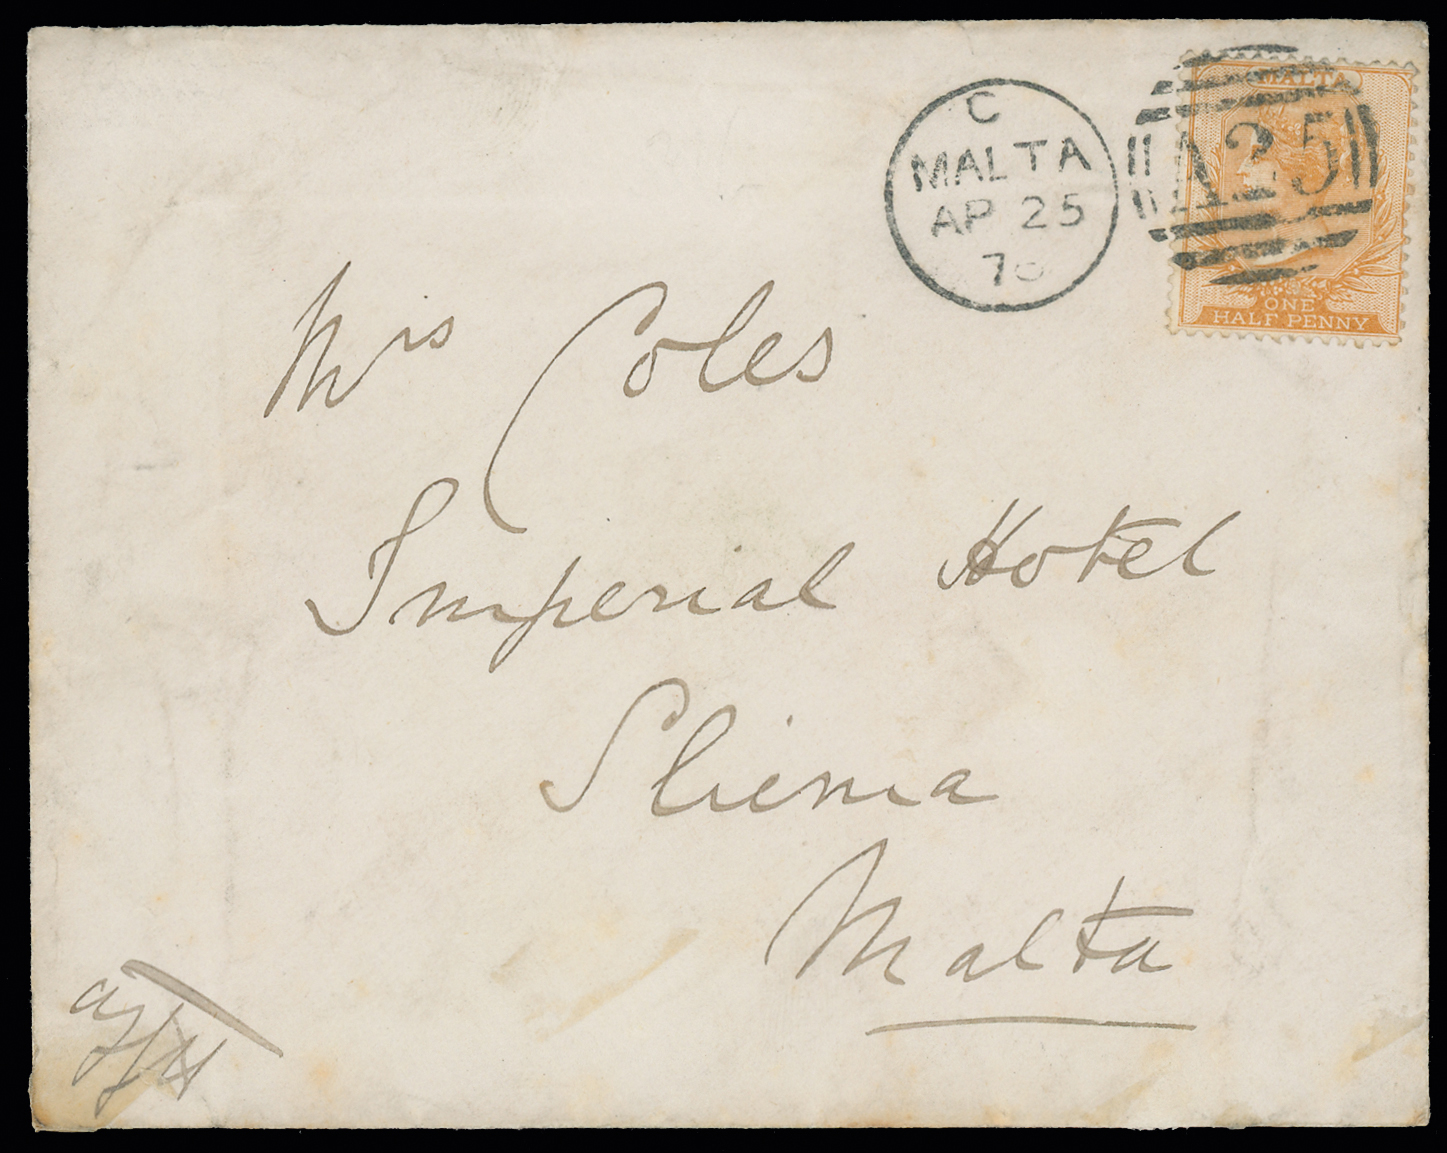 C
MALTA
AP 25
MALTA
A25
ONE
HALF PENNY
Mrs Coles
Imperial Hotel
Sliema
Malta